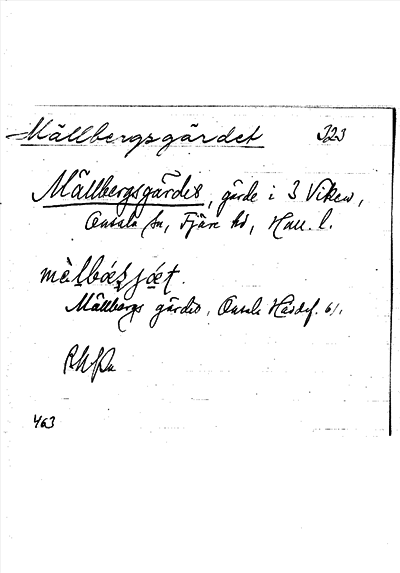 Mällbergsgärdet 323
Mällbergsgärdet, gärde i 3 Viken,
Onsala sn, Fjäre hd, Hall. l.
mälbæsjæt.
Mällbergs gärdet, Onsala Hasdef. 61.
463